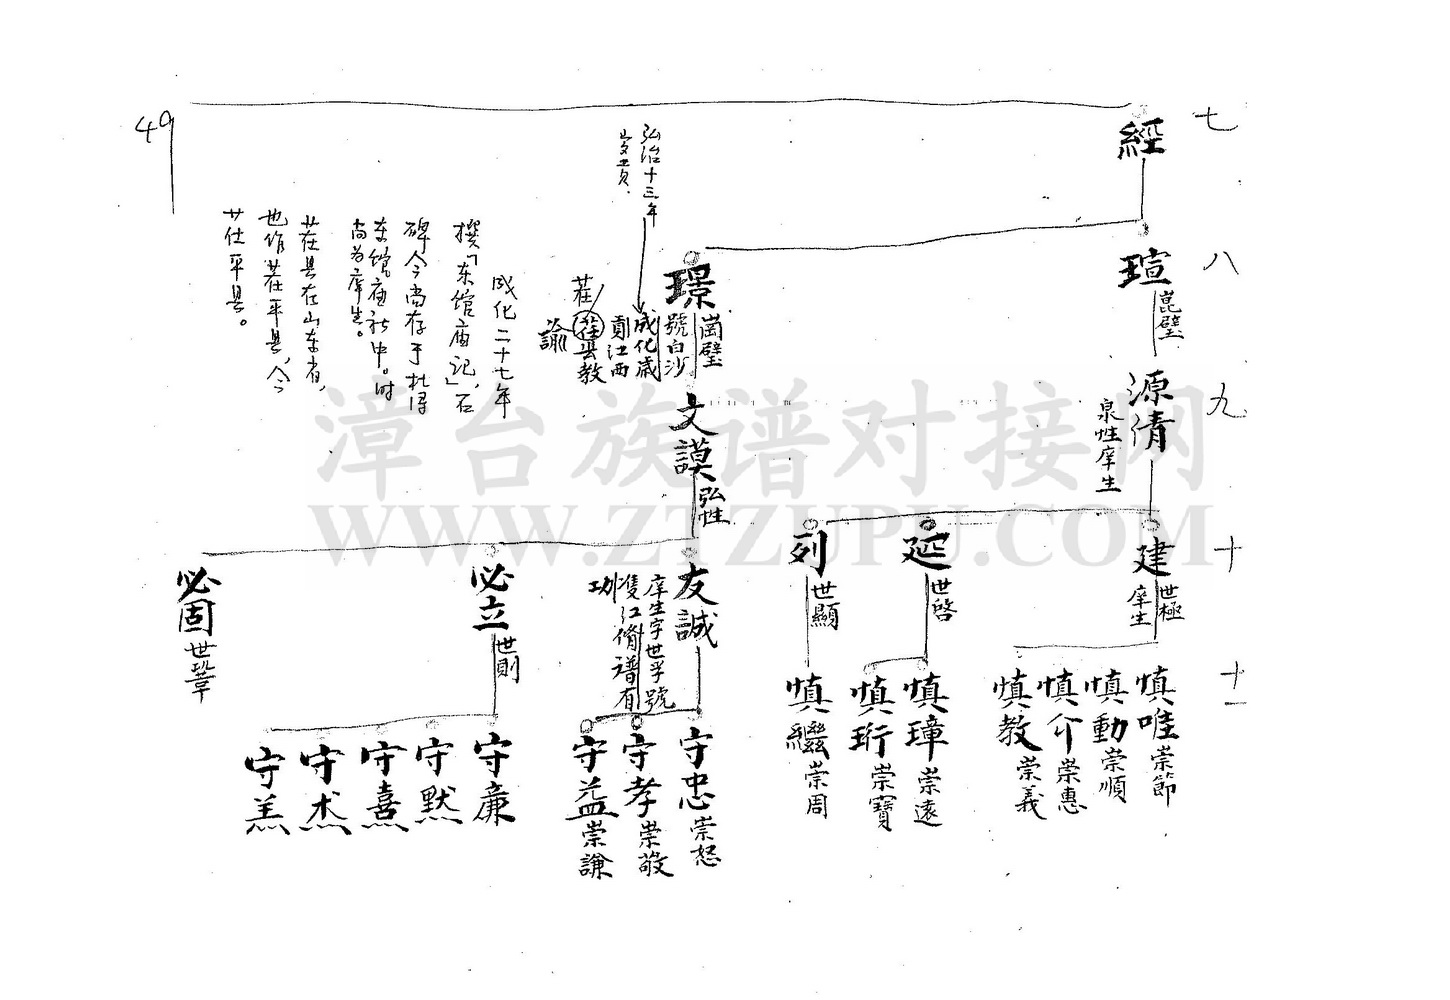 七
八
九
十
十一
經
瑄
崑璧
源倩
泉性庠生
建
世極
庠生
慎唯崇節
慎動崇順
慎介崇惠
慎教崇義
延
世啓
慎璋崇遠
慎珩崇寶
列
世顯
慎繼崇周
璟
崗璧
號白沙
成化歲
貢江西
茌
教
諭
弘治十三年
岁贡.
文謨
弘性
友誠
庠生字世孚號
隻江脩譜有
功
守忠崇恕
守孝崇敬
守益崇謙
必立
世則
守廉
守默
守熹
守杰
守羔
必固
世鞏
成化二十七年
撰「东馆庙记」,石
碑今尚存于杜浔
东馆庙社中。时
尚为庠生。
茌县在山东省,
也作茌平县,今
仕平县。
49
漳台族谱对接网
WWW.ZTZUPU.COM